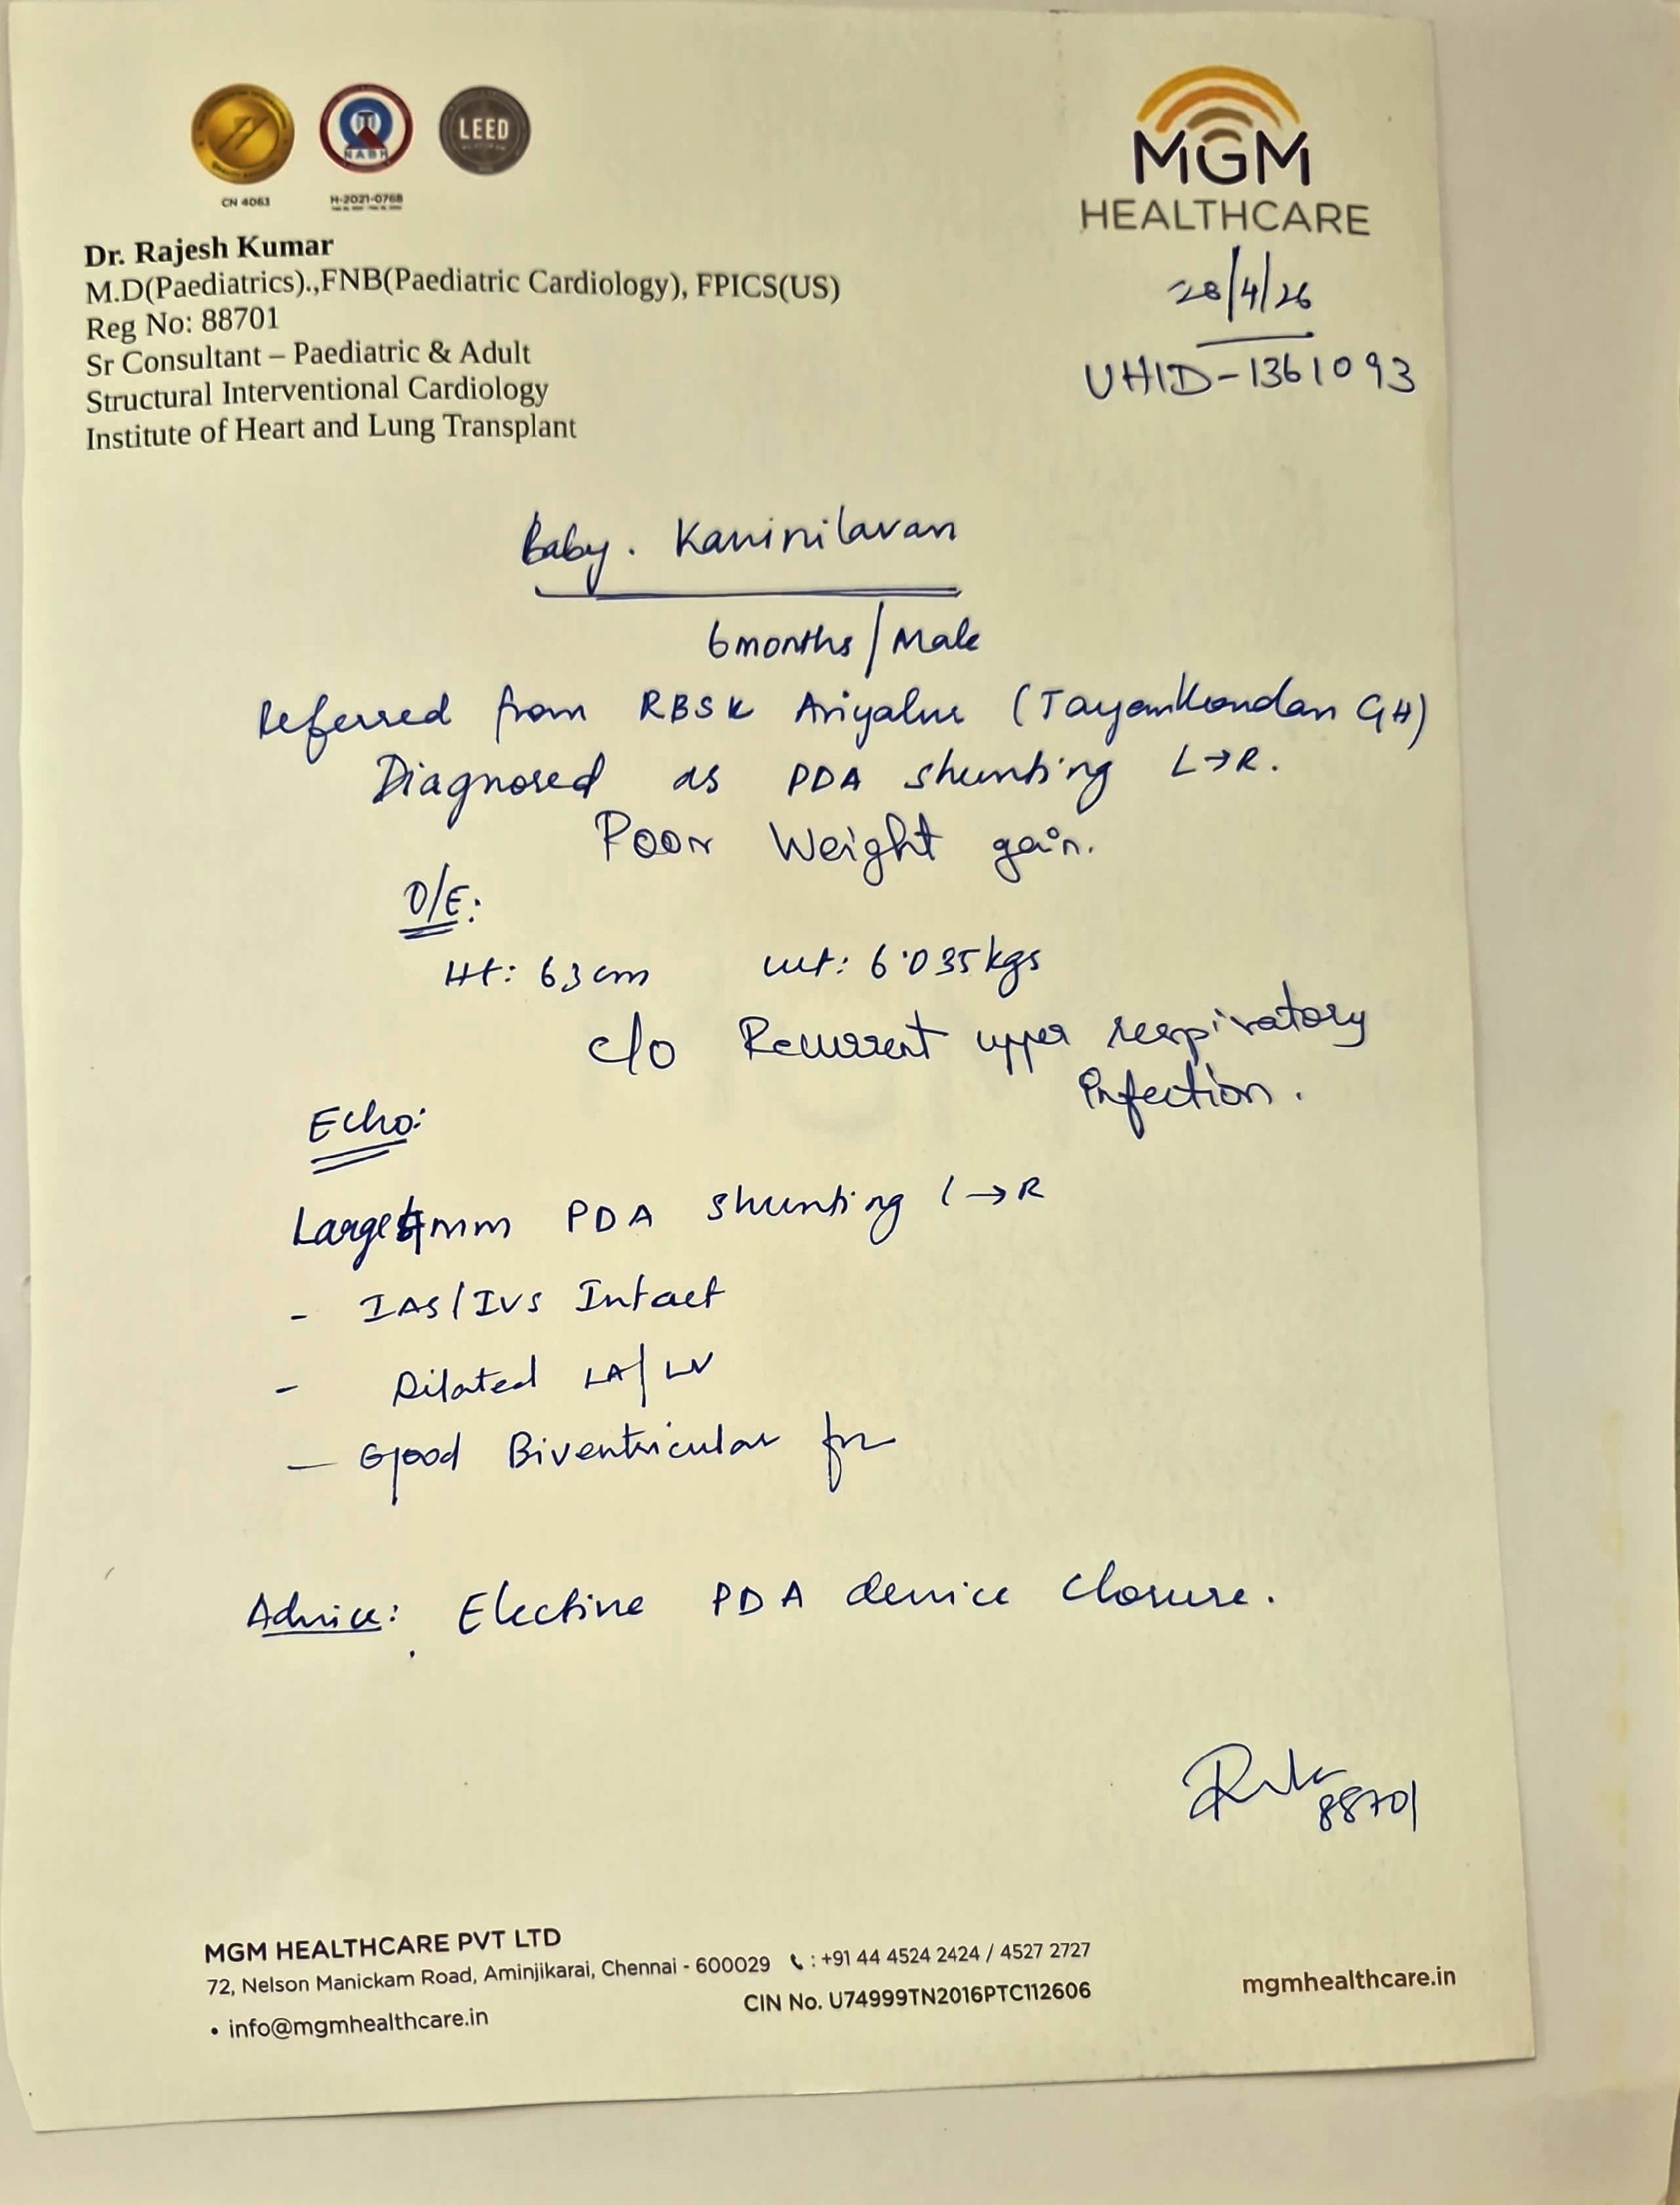 CN 4063
NABH
H-2021-0768
LEED
MGM
HEALTHCARE
Dr. Rajesh Kumar
M.D(Paediatrics).,FNB(Paediatric Cardiology), FPICS(US)
Reg No: 88701
Sr Consultant – Paediatric & Adult
Structural Interventional Cardiology
Institute of Heart and Lung Transplant
28/4/26
UHID-1361093
Baby. Kaninilavan
6months/Male
Referred from RBSK Ariyalur (Tayamkondan GH)
Diagnosed as PDA shunting L→R.
Poor Weight gain.
O/E:
Ht: 63cm wt: 6.035kgs
c/o Recurrent upper respiratory
infection.
Echo:
Large 4mm PDA shunting L→R
- IAS/IVS Intact
- Dilated LA/LV
- Good Biventricular fn
Advice: Elective PDA device closure.
88701
MGM HEALTHCARE PVT LTD
72, Nelson Manickam Road, Aminjikarai, Chennai - 600029 : +91 44 4524 2424 / 4527 2727
• info@mgmhealthcare.in
CIN No. U74999TN2016PTC112606
mgmhealthcare.in